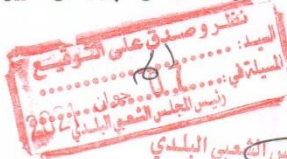 نظر و صدق على التوقيع
السيد: ....................
المسيلة في: ........ جوان 2021
رئيس المجلس الشعبي البلدي
الشعبي البلدي